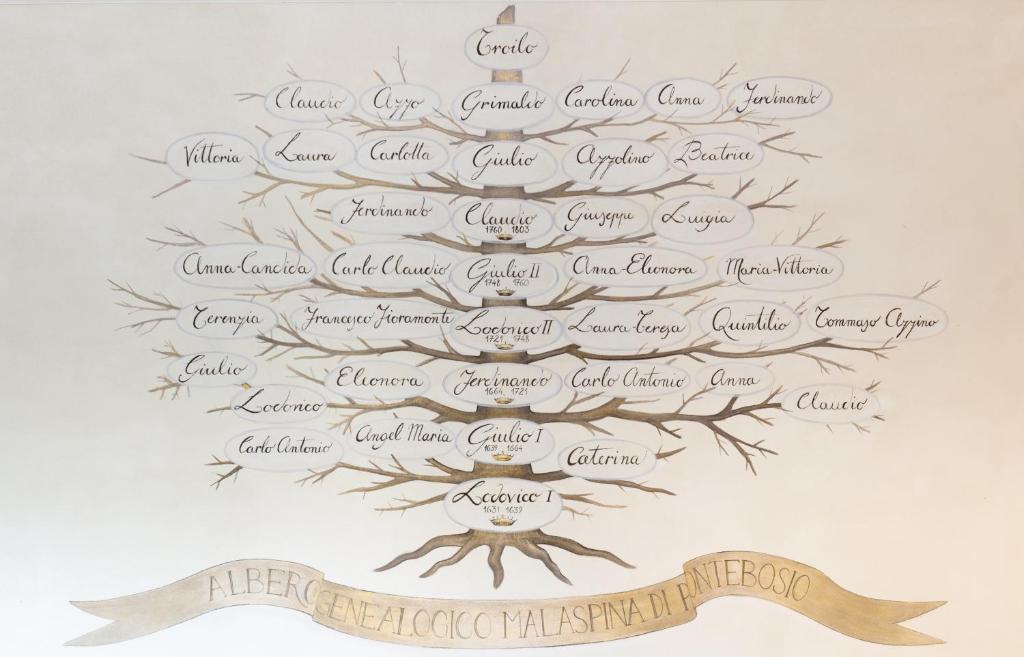 Troilo
Claudio Azzo Grimaldo Carolina Anna Ferdinando
Vittoria Laura Carlotta Giulio Azzolino Beatrice
Ferdinando Claudio Giuseppe Luigia
1760 1803
Anna-Candida Carlo Claudio Giulio II Anna-Eleonora Maria-Vittoria
1748 1760
Terenzia Francesco Fioramonte Lodovico II Laura Teresa Quintilio Tommaso Azzino
1721 1748
Giulio Eleonora Ferdinando Carlo Antonio Anna
1664 1721
Lodovico Claudio
Carlo Antonio Angel Maria Giulio I Caterina
1639 1664
Lodovico I
1631 1639
ALBERO GENEALOGICO MALASPINA DI PONTEBOSIO